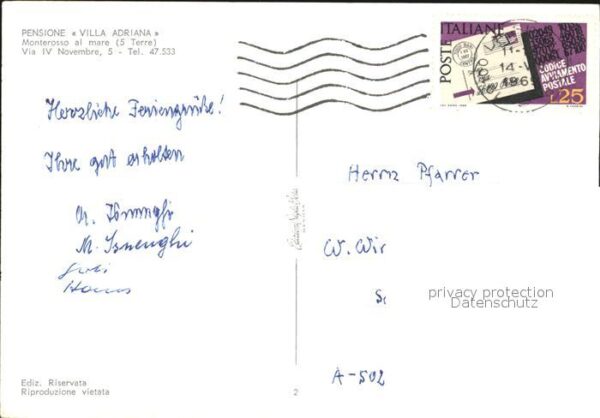 PENSIONE « VILLA ADRIANA »
Monterosso al mare (5 Terre)
Via IV Novembre, 5 - Tel. 47.533
POSTE ITALIANE
CODICE
AVVIAMENTO
POSTALE
L.25
11-
14-V
196
Herzliche Feriengrüße!
Ihre gut erholten
M. Isnenghi
Hans
Herrn Pfarrer
W. Wir
S
privacy protection
Datenschutz
A-502
Ediz. Riservata
Riproduzione vietata
2